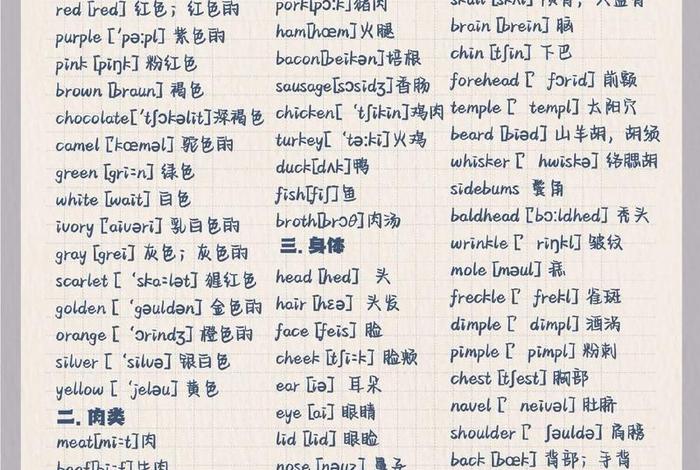 red [red] 红色；红色的
purple ['pə:pl] 紫色的
pink [piŋk] 粉红色
brown [braun] 褐色
chocolate['tʃɔkəlit]深褐色
camel ['kæməl] 驼色的
green [gri:n] 绿色
white [wait] 白色
ivory [aivəri] 乳白色的
gray [grei] 灰色；灰色的
scarlet [ 'ska:lət] 猩红色
golden [ 'gəuldən] 金色的
orange [ 'ɔrindʒ] 橙色的
silver [ 'silvə] 银白色
yellow [ 'jeləu] 黄色
二. 肉类
meat[mi:t]肉
beef[bi:f]牛肉
pork[pɔ:k]猪肉
ham[hæm]火腿
bacon[beikən]培根
sausage[sɔsidʒ]香肠
chicken['tʃikin]鸡肉
turkey[ 'tə:ki]火鸡
duck[dʌk]鸭
fish[fiʃ]鱼
broth[brɔθ]肉汤
三. 身体
head [hed] 头
hair [hɛə] 头发
face [feis] 脸
cheek [tʃi:k] 脸颊
ear [iə] 耳朵
eye [ai] 眼睛
lid [lid] 眼睑
nose [nəuz] 鼻子
brain [brein] 脑
chin [tʃin] 下巴
forehead [' fɔrid] 前额
temple [' templ] 太阳穴
beard [biəd] 山羊胡，胡须
whisker [' hwiskə] 络腮胡
sidebums 鬓角
baldhead [bɔ:ldhed] 秃头
wrinkle [' riŋkl] 皱纹
mole [məul] 痣
freckle [' frekl] 雀斑
dimple [' dimpl] 酒涡
pimple [' pimpl] 粉刺
chest [tʃest] 胸部
navel [' neivəl] 肚脐
shoulder [' ʃəuldə] 肩膀
back [bæk] 背部；手背